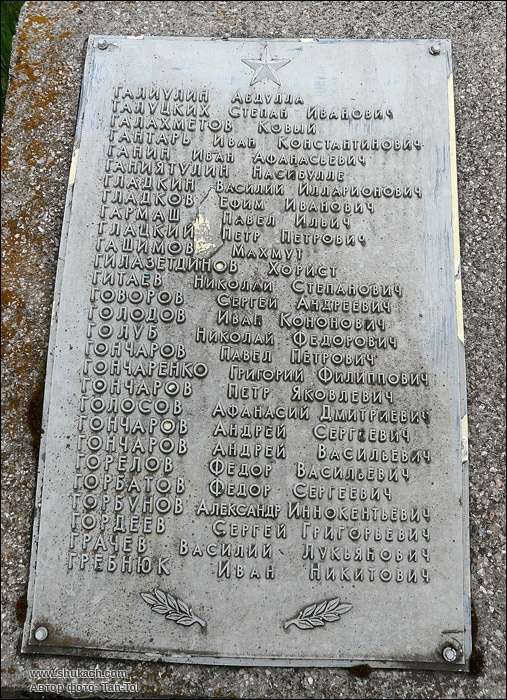 ГАЛИУЛИН АБДУЛЛА
ГАЛУЦКИХ СТЕПАН ИВАНОВИЧ
ГАЛАХМЕТОВ КОВЫЙ
ГАНТАРЬ ИВАН КОНСТАНТИНОВИЧ
ГАНИН ИВАН АФАНАСЬЕВИЧ
ГАНИЯТУЛИН НАСИБУЛЛЕ
ГЛАДКИН ВАСИЛИЙ ИЛЛАРИОНОВИЧ
ГЛАДКОВ ЕФИМ ИВАНОВИЧ
ГАРМАШ ПАВЕЛ ИЛВИЧ
ГЛАЦКИЙ ПЕТР ПЕТРОВИЧ
ГАШИМОВ МАХМУТ
ГИЛАЗЕТДИНОВ ХОРИСТ
ГИТАЕВ НИКОЛАЙ СТЕПАНОВИЧ
ГОВОРОВ СЕРГЕЙ АНДРЕЕВИЧ
ГОЛОДОВ ИВАН КОНОНОВИЧ
ГОЛУБ НИКОЛАЙ ФЕДОРОВИЧ
ГОНЧАРОВ ПАВЕЛ ПЕТРОВИЧ
ГОНЧАРЕНКО ГРИГОРИЙ ФИЛИППОВИЧ
ГОНЧАРОВ ПЕТР ЯКОВЛЕВИЧ
ГОЛОСОВ АФАНАСИЙ ДМИТРИЕВИЧ
ГОНЧАРОВ АНДРЕЙ СЕРГЕЕВИЧ
ГОНЧАРОВ АНДРЕЙ ВАСИЛЬЕВИЧ
ГОРЕЛОВ ФЕДОР ВАСИЛЬЕВИЧ
ГОРБАТОВ ФЕДОР СЕРГЕЕВИЧ
ГОРБУНОВ АЛЕКСАНДР ИННОКЕНТЬЕВИЧ
ГОРДЕЕВ СЕРГЕЙ ГРИГОРЬЕВИЧ
ГРАЧЕВ ВАСИЛИЙ ЛУКЬЯНОВИЧ
ГРЕБНЮК ИВАН НИКИТОВИЧ
www.shukach.com
Автор фото: Tan-Tol